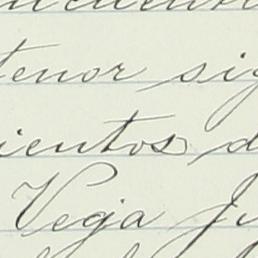 tenor sig
ientos d
Vega Ju